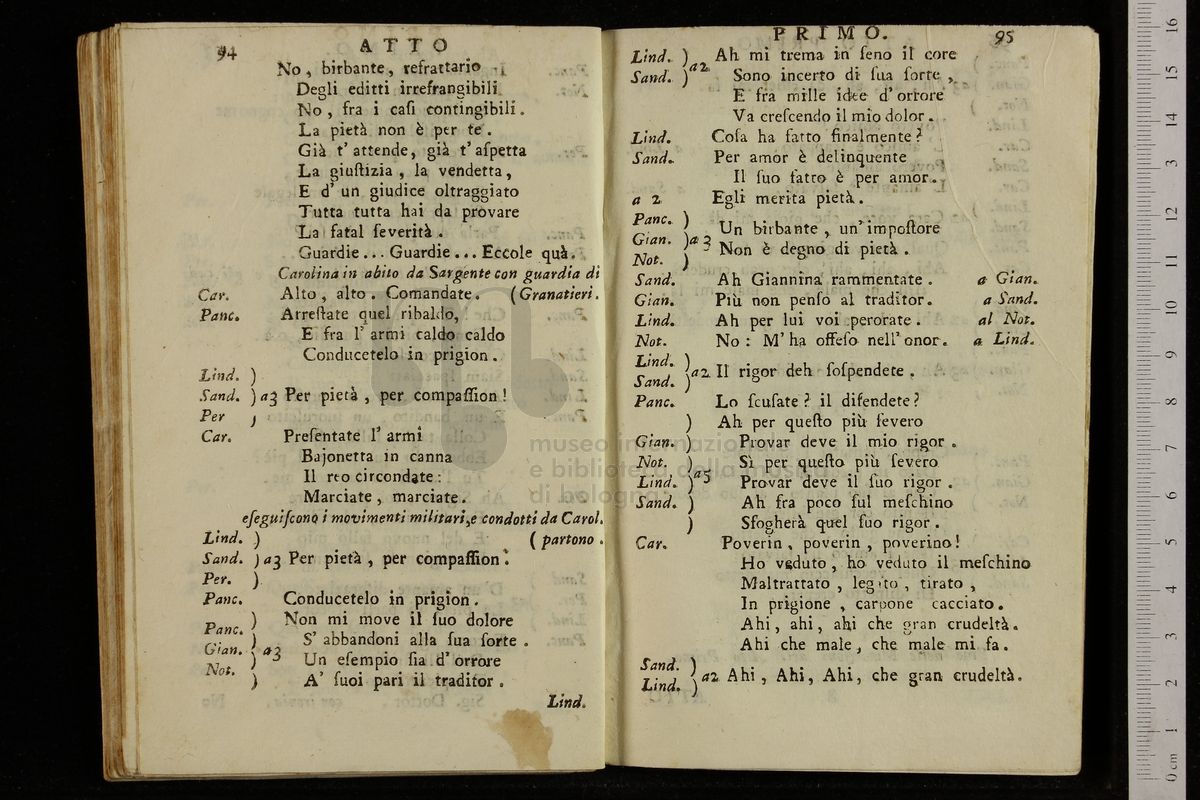 94
ATTO
No, birbante, refrattario
Degli editti irrefrangibili
No, fra i caſi contingibili.
La pietà non è per te.
Già t' attende, già t' aſpetta
La giuſtizia, la vendetta,
E d' un giudice oltraggiato
Tutta tutta hai da provare
La fatal ſeverità.
Guardie... Guardie... Eccole quà.
Carolina in abito da Sargente con guardia di
Car. Alto, alto. Comandate. (Granatieri.
Panc. Arreſtate quel ribaldo,
E fra l' armi caldo caldo
Conducetelo in prigion.
Lind. )
Sand. ) a3 Per pietà, per compaſſion!
Per )
Car. Preſentate l' armi
Bajonetta in canna
Il reo circondate:
Marciate, marciate.
eſeguiſcono i movimenti militari, e condotti da Carol.
Lind. ) ( partono.
Sand. ) a3 Per pietà, per compaſſion.
Per. )
Panc. Conducetelo in prigion.
Panc. ) Non mi move il ſuo dolore
Gian. ) a3 S' abbandoni alla ſua ſorte.
Not. ) Un eſempio ſia d' orrore
) A' ſuoi pari il traditor.
Lind.
PRIMO. 95
Lind. ) a2 Ah mi trema in ſeno il core
Sand. ) Sono incerto di ſua ſorte,
E fra mille idee d' orrore
Va creſcendo il mio dolor.
Lind. Coſa ha fatto finalmente?
Sand. Per amor è delinquente
Il ſuo fatto è per amor.
a 2 Egli merita pietà.
Panc. ) Un birbante, un' impoſtore
Gian. ) a3
Not. ) Non è degno di pietà.
Sand. Ah Giannina rammentate. a Gian.
Gian. Più non penſo al traditor. a Sand.
Lind. Ah per lui voi perorate. al Not.
Not. No: M' ha offeſo nell' onor. a Lind.
Lind. )
Sand. ) a2 Il rigor deh ſoſpendete.
Panc. Lo ſcuſate? il difendete?
) Ah per queſto più ſevero
Gian. ) Provar deve il mio rigor.
Not. ) Sì per queſto più ſevero
Lind. ) a5 Provar deve il ſuo rigor.
Sand. ) Ah fra poco ſul meſchino
) Sfogherà quel ſuo rigor.
Car. Poverin, poverin, poverino!
Ho veduto, ho veduto il meſchino
Maltrattato, legato, tirato,
In prigione, carpone cacciato.
Ahi, ahi, ahi che gran crudeltà.
Ahi che male, che male mi fa.
Sand. )
Lind. ) a2 Ahi, Ahi, Ahi, che gran crudeltà.
museo internazionale
e biblioteca della musica
di bologna